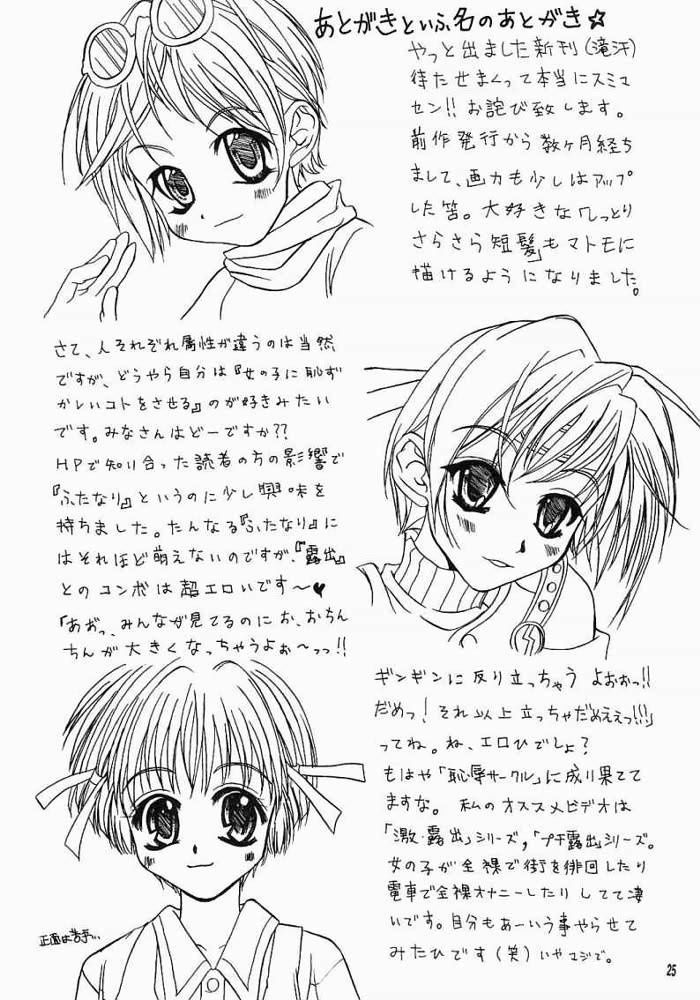 あとがきといふ名のあとがき☆
やっと出ました新刊(滝汗)
待たせまくって本当にスミマ
セン!!お詫び致します。
前作発行から数ヶ月経ち
まして、画力も少しはアップ
した筈。大好きな「しっとり
さらさら短髪」もマトモに
描けるようになりました。
さて、人それぞれ属性が違うのは当然
ですが、どうやら自分は『女の子に恥ず
かしいコトをさせる』のが好きみたい
です。みなさんはどーですか??
HPで知り合った読者の方の影響で
『ふたなり』というのに少し興味を
持ちました。たんなる『ふたなり』に
はそれほど萌えないのですが、『露出』
とのコンボは超エロいです〜♥
「あおっ、みんなが見てるのにお、おちん
ちんが大きくなっちゃうよぉ〜っっ!!
ギンギンに反り立っちゃうよおおっ!!
だめっ!それ以上立っちゃだめええっ!!!」
ってね。ね、エロひでしょ?
もはや「恥辱サークル」に成り果てて
ますな。私のオススメビデオは
「激・露出」シリーズ,「プチ露出」シリーズ。
女の子が全裸で街を徘回したり
電車で全裸オナニーしたりしてて凄
いです。自分もあーいう事やらせて
みたひです(笑)いやマジで。
正面は苦手…
25